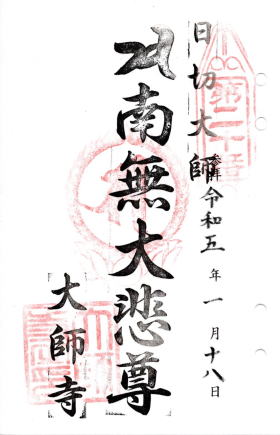 日切大師
参拝
令和五年一月十八日
南無大悲尊
大師寺